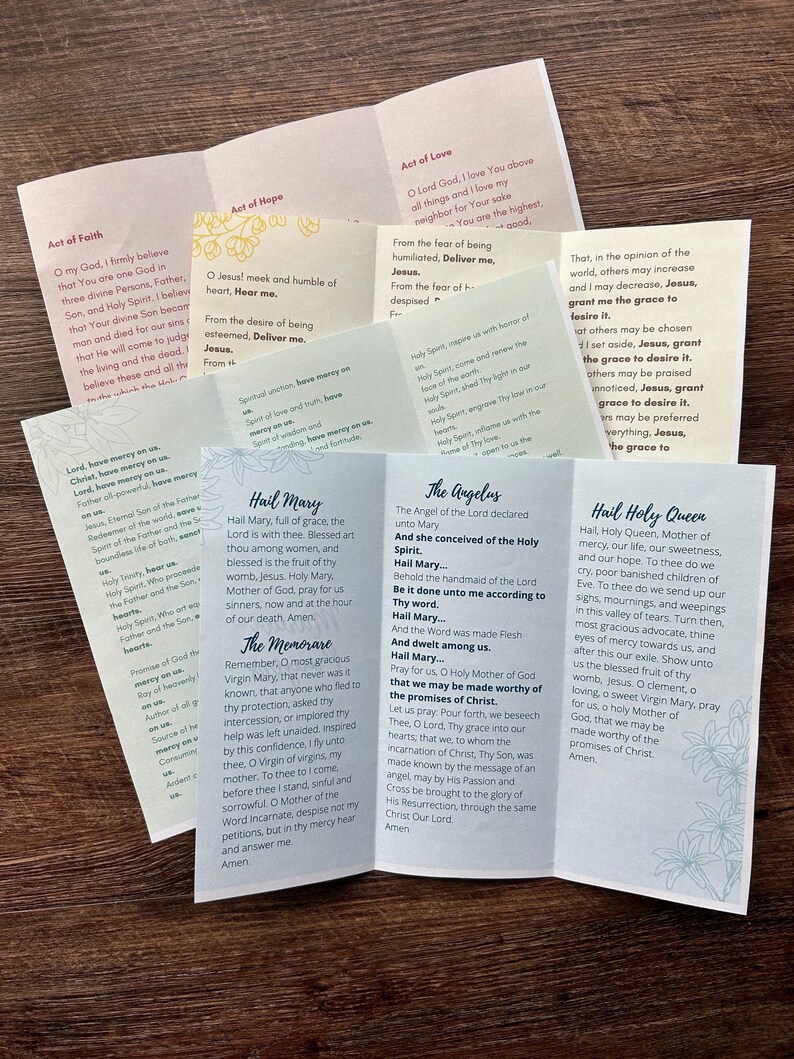 Act of Faith
O my God, I firmly believe
that You are one God in
three divine Persons, Father,
Son, and Holy Spirit. I believe
that Your divine Son became
man and died for our sins
that He will come to judge
the living and the dead.
believe these and all the
truths which the Holy
Act of Hope
Act of Love
O Lord God, I love You above
all things and I love my
neighbor for Your sake
You are the highest,
good,
O Jesus! meek and humble of
heart, Hear me.
From the desire of being
esteemed, Deliver me,
Jesus.
From the
From the fear of being
humiliated, Deliver me,
Jesus.
From the fear of
despised,
That, in the opinion of the
world, others may increase
and I may decrease, Jesus,
grant me the grace to
desire it.
others may be chosen
I set aside, Jesus, grant
the grace to desire it.
others may be praised
unnoticed, Jesus, grant
grace to desire it.
may be preferred
everything, Jesus,
the grace to
Lord, have mercy on us.
Christ, have mercy on us.
Lord, have mercy on us.
Father all-powerful, have mercy
on us.
Jesus, Eternal Son of the Father
Redeemer of the world, save
Spirit of the Father and the
boundless life of both,
us.
Holy Trinity, hear us.
Holy Spirit, Who proceeds
the Father and the Son,
hearts.
Holy Spirit, Who art
Father and the Son,
hearts.
Promise of God
mercy on us.
Ray of heavenly
on us.
Author of all
on us.
Source of
mercy on
Consuming
us.
Ardent
us.
Spiritual unction, have mercy on
us.
Spirit of love and truth, have
mercy on us.
Spirit of wisdom and
have mercy on us.
and fortitude,
Holy Spirit, inspire us with horror of
sin.
Holy Spirit, come and renew the
face of the earth.
Holy Spirit, shed Thy light in our
souls.
Holy Spirit, engrave Thy law in our
hearts.
Holy Spirit, inflame us with the
flame of Thy love.
open to us the
well.
Hail Mary
Hail Mary, full of grace, the
Lord is with thee. Blessed art
thou among women, and
blessed is the fruit of thy
womb, Jesus. Holy Mary,
Mother of God, pray for us
sinners, now and at the hour
of our death. Amen.
The Memorare
Remember, O most gracious
Virgin Mary, that never was it
known, that anyone who fled to
thy protection, asked thy
intercession, or implored thy
help was left unaided. Inspired
by this confidence, I fly unto
thee, O Virgin of virgins, my
mother. To thee to I come,
before thee I stand, sinful and
sorrowful. O Mother of the
Word Incarnate, despise not my
petitions, but in thy mercy hear
and answer me.
Amen.
The Angelus
The Angel of the Lord declared
unto Mary
And she conceived of the Holy
Spirit.
Hail Mary...
Behold the handmaid of the Lord
Be it done unto me according to
Thy word.
Hail Mary...
And the Word was made Flesh
And dwelt among us.
Hail Mary...
Pray for us, O Holy Mother of God
that we may be made worthy of
the promises of Christ.
Let us pray: Pour forth, we beseech
Thee, O Lord, Thy grace into our
hearts; that we, to whom the
incarnation of Christ, Thy Son, was
made known by the message of an
angel, may by His Passion and
Cross be brought to the glory of
His Resurrection, through the same
Christ Our Lord.
Amen
Hail Holy Queen
Hail, Holy Queen, Mother of
mercy, our life, our sweetness,
and our hope. To thee do we
cry, poor banished children of
Eve. To thee do we send up our
sighs, mournings, and weepings
in this valley of tears. Turn then,
most gracious advocate, thine
eyes of mercy towards us, and
after this our exile. Show unto
us the blessed fruit of thy
womb, Jesus. O clement, o
loving, o sweet Virgin Mary, pray
for us, o holy Mother of
God, that we may be
made worthy of the
promises of Christ.
Amen.